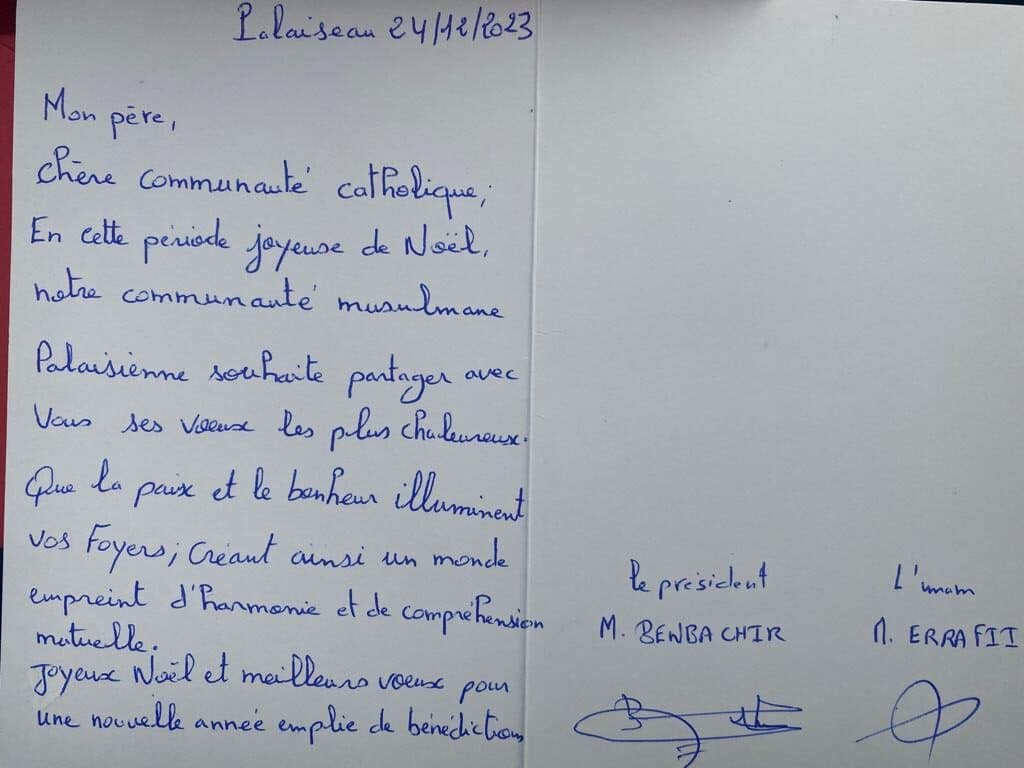 Palaiseau 24/12/2023
Mon père,
Chère communauté catholique;
En cette période joyeuse de Noël,
notre communauté musulmane
Palaisienne souhaite partager avec
Vous ses vœux les plus chaleureux.
Que la paix et le bonheur illuminent
vos Foyers; Créant ainsi un monde
empreint d'harmonie et de compréhension
mutuelle.
Joyeux Noël et meilleurs vœux pour
une nouvelle année emplie de bénédictions
Le président
M. BENBACHIR
L'imam
M. ERRAFII